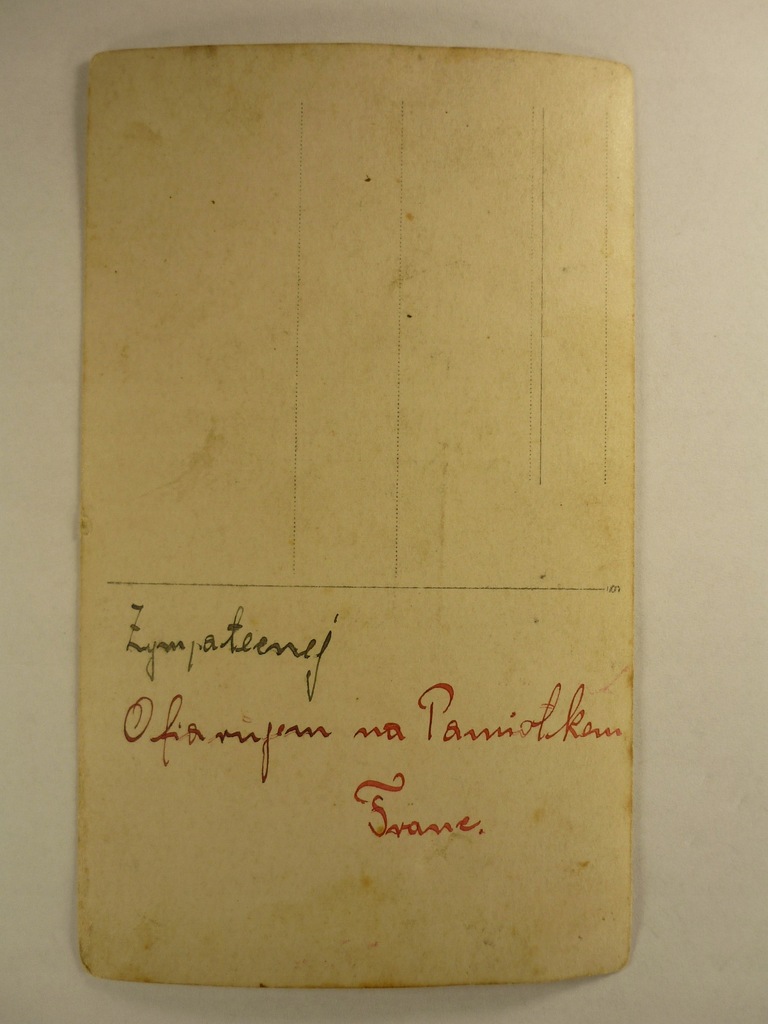 Zympateenej
Ofiarujem na Pamiotkem
Franc.